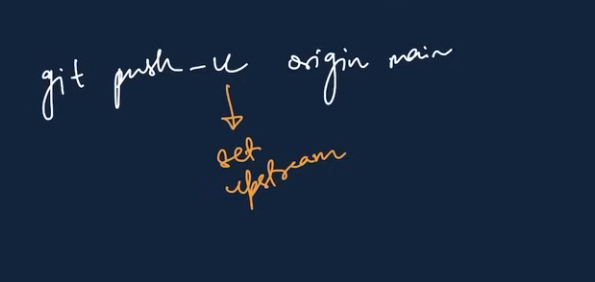 git push -u origin main
set
upstream